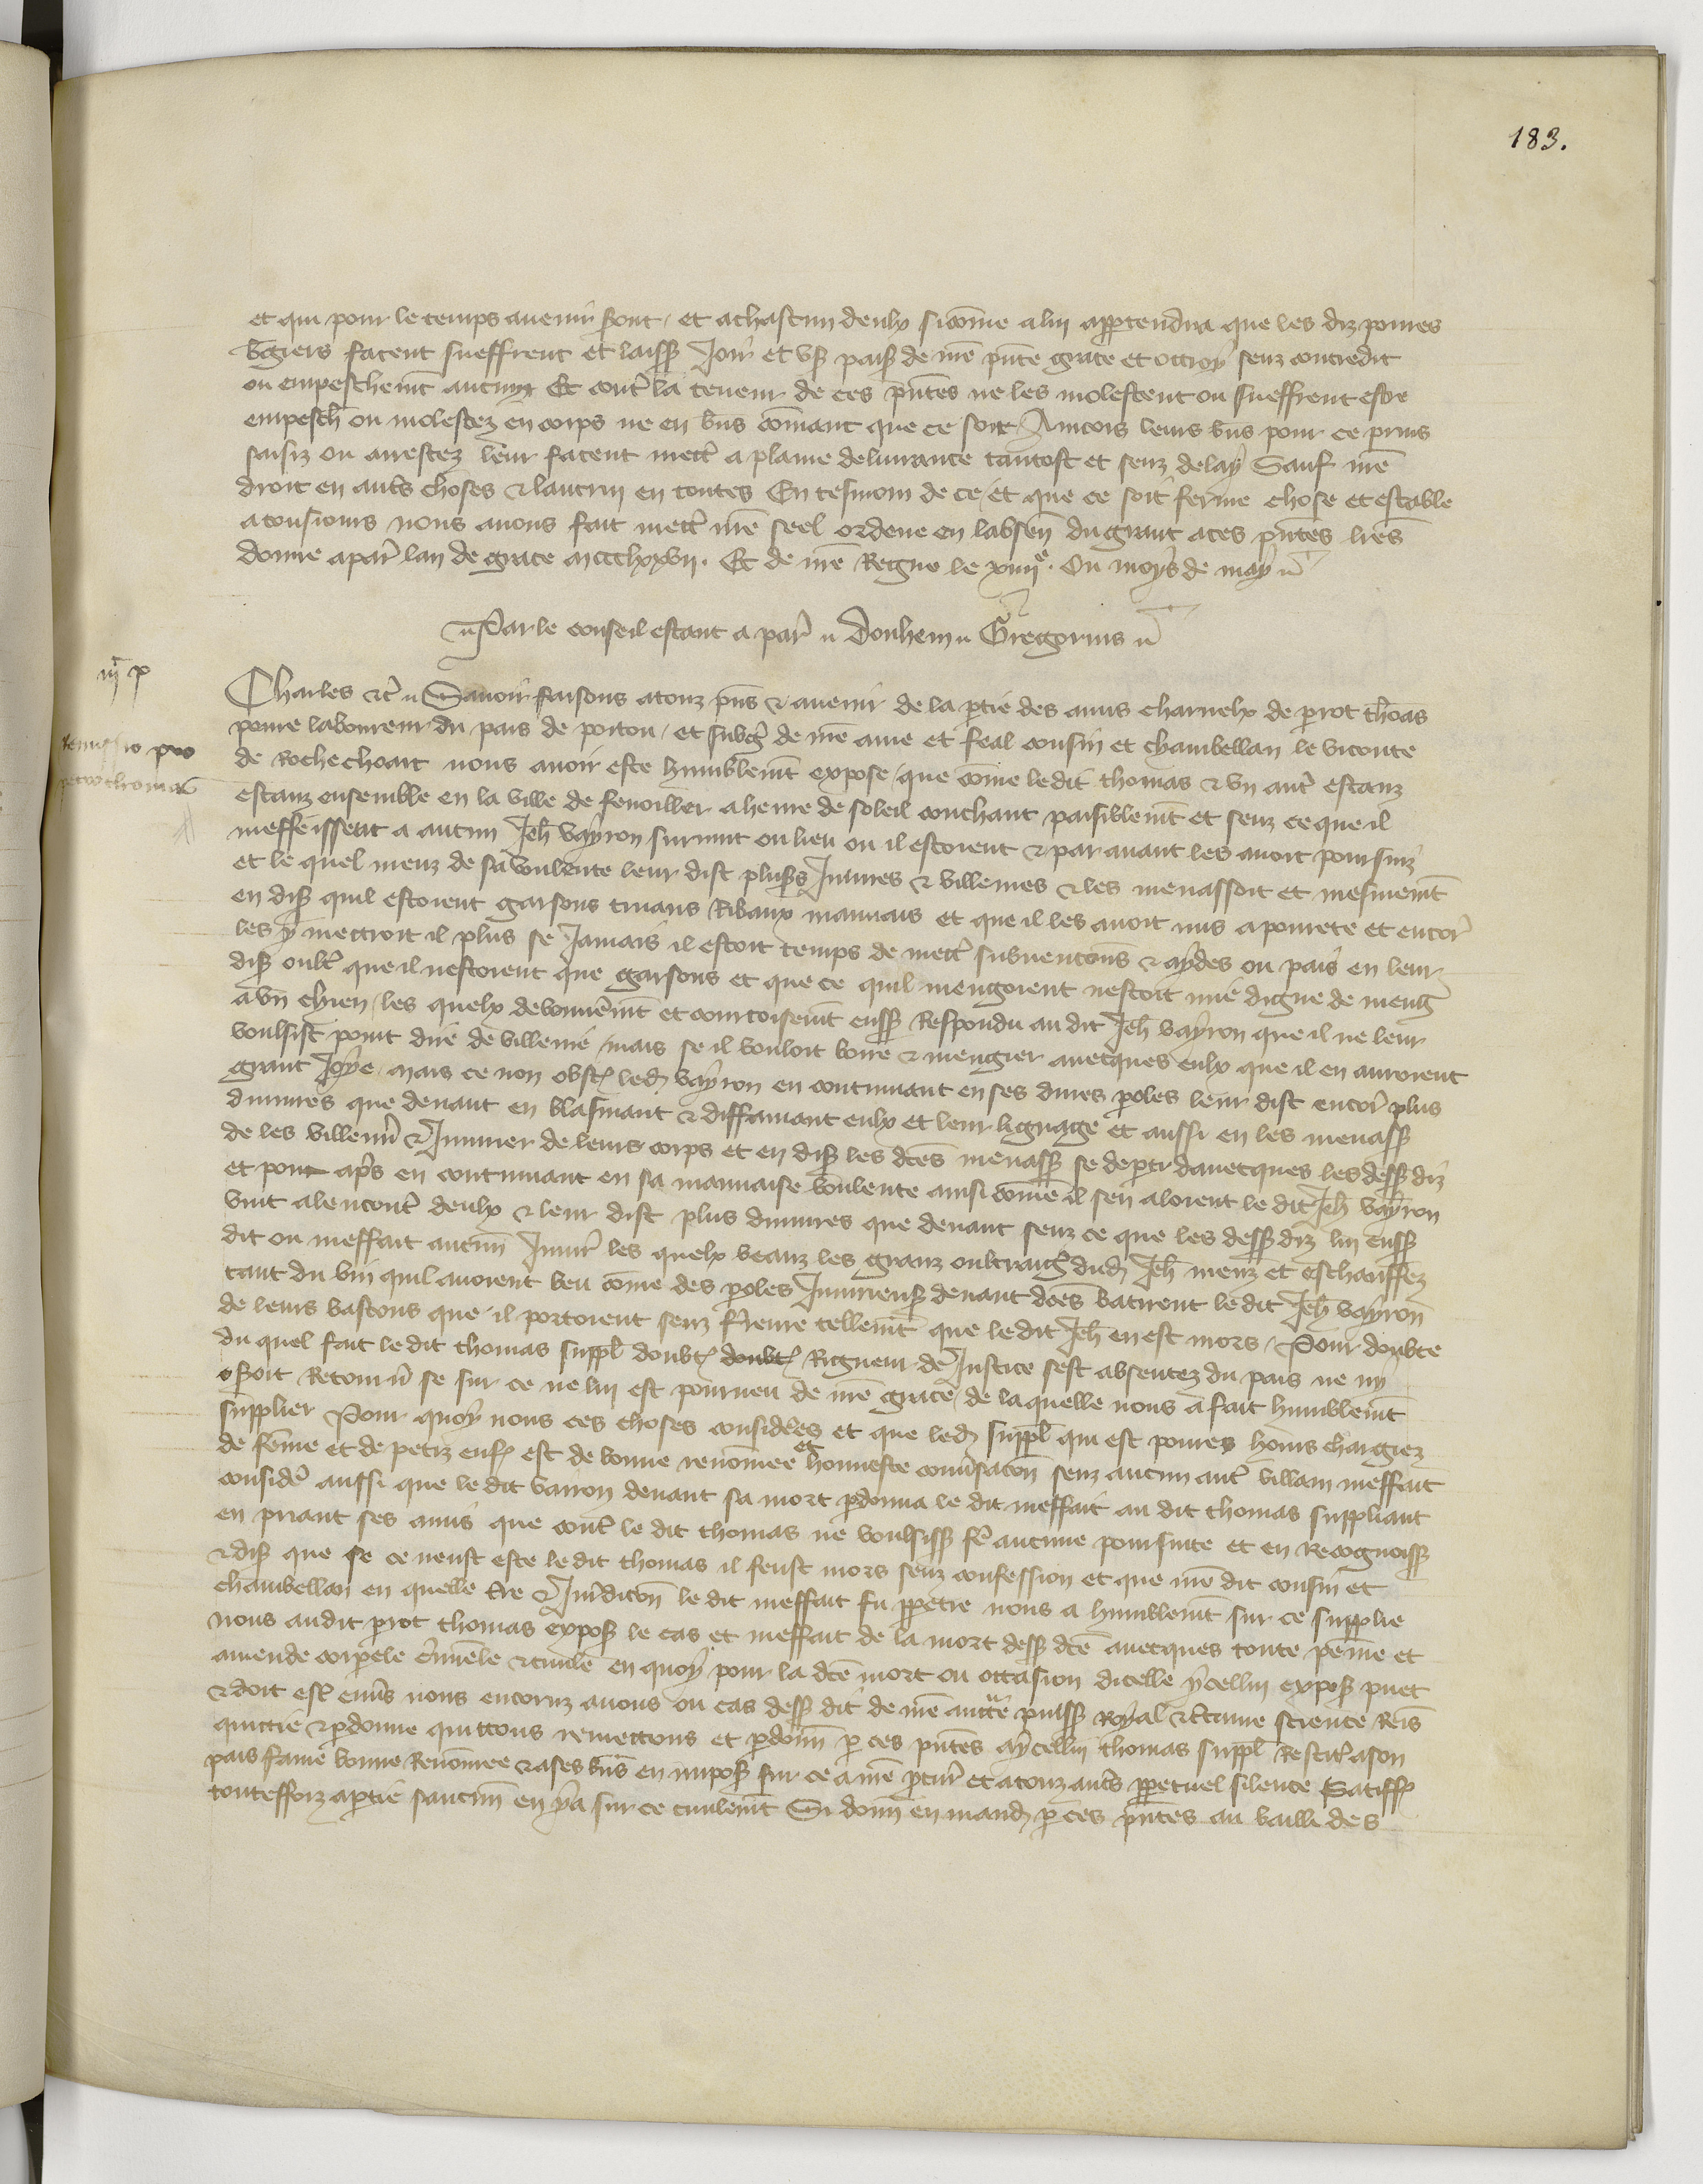 183.
et qui pour le temps avenir sont, et a chascun deulx si cõme a lui appartendra que les diz povres
bgiers facent sueffrent et laiss Joir et us paisi de nr̃e pñte grace et ottroy senz contredit
ou empeschemt aucun Et contr̃ la teneur de ces pñtes ne les molestent ou sueffrent estre
empesch ou molestez en corps ne en biẽs cõmant que ce soit Aincois leurs biẽs pour ce prins
saisiz ou arrestez leur facent mectr̃ a plaine delivrance tantost et senz delay Sauf nr̃e
droit en autr̃s choses & lautruy en toutes En tesmoin de ce, et que ce soit ferme chose et estable
a tousiours nous avons fait mectr̃ nr̃e seel ordene en labsenc du grant a ces pñtes lr̃es
donne a par̃ lan de grace mccclxxvii. Et de nr̃e Regne le xiiiie. Ou moys de may
Par le conseil estant a par̃ Douhem Gregorius
iii p
Charles etc̃ Savoir faisons a touz pñs & avenir de la ptie des amis charnelx de perrot thõas
povre laboureur du pais de poitou, et subgt̃ de nr̃e ame et feal cousin et chambellan le viconte
remissio pro
petro thomas
de Rochechoart nous avoir este humblemt expose, que cõme ledit thomas & un autr̃ estanz
estanz ensemble en la ville de fenoiller a heure de soleil couchant paisiblemt et senz ce que il
meffeissent a aucun Jeh vayron survint ou lieu ou il estoient & par avant les avoit poursuiz
et le quel meuz de sa voulente leur dist plus̃s Jniures & villenies & les menassoit et mesmemt
en dis quil estoient garsons truans Ribaux mauvais et que il les avoit mis a povrete et encor̃
les y mectroit il plus se Jamais il estoit temps de mectr̃ subvencõns & aydes ou pais en leur
dis oultr̃ que il nestoient que garsons et que ce quil mengoient nestoit mie digne de meng̃
a un chien, les quelx debonnẽmt et courtoisemt euss Respondu au dit Jeh vayron que il ne leur
voulsist point dire de villenie, mais se il vouloit boire & mengier avecques eulx que il en auroient
grant Joye, mais ce non obst led vayron en continuant en ses dures poles leur dist encor̃ plus
d'iniures que devant en blasmant & diffamant eulx et leur lignage et aussi en les menass
de les villenñ & Jniurier de leurs corps et en dis les dcẽs menass se depti davecques les dess diz
et pou apr̃s en continuant en sa mauvaise voulente ainsi cõme il sen aloient le dit Jeh vayron
vint alencontr̃ deulx & leur dist plus diniures que devant senz ce que les dess diz lui euss
dit ou meffait aucun Jniur̃ les quelx veanz les granz oultraig̃ dud Jeh meuz et eschauffez
tant du vin quil avoient beu cõme des poles Jniurieus devant dcẽs batirent le dit Jeh vayron
de leurs bastons que il portoient senz ferreure tellemt que ledit Jeh en est mors, Pour doubte
du quel fait le dit thomas suppl doubt Rigueur de Justice sest absentez du pais ne ny
oseroit Retourñ se sur ce ne lui est pourveu de nr̃e grace, de laquelle nous a fait humblemt
supplier Pour quoy nous ces choses consider̃es et que led suppl qui est povres hõms chargiez
de fẽme et de petiz enf̃ est de bonne renõmee et honneste conũsacõn senz aucun autr̃ villain meffait
consider̃ aussi que le dit vairon devant sa mort pdonna le dit meffait au dit thomas suppliant
en priant ses amis que contr̃ le dit thomas ne voulsiss fr̃e aucune poursuite et en recognoiss
& dis que se ce neust este le dit thomas il feust mors senz confession et que nr̃e dit cousin et
chambellan en quelle tr̃re & Jur̃dicõn le dit meffait fu ppetre nous a humblemt sur ce supplie
nous audit perrot thomas expos le cas et meffait de la mort dess dcẽ avecques toute peine et
amende corporele cr̃imẽle & civile en quoy pour la dcẽ mort ou occasion dicelle ycellui expos puet
& doit estr̃ envr̃s nous encoruz avons ou cas dess dit de nr̃e auctte puiss Royal & ctaine science Remis
quictie & pdonne quictons remectons et pdonñ p ces pñtes a ycellui thomas suppl Restit a son
pais fame bonne Renõmee & a ses biẽs en impos sur ce a nr̃e pcur̃ et a touz autr̃s ppetuel silence Satiff
toutesfoiz a ptie sauc̃un en y a sur ce civilemt Si donñ en mand p ces pñtes au bailli des